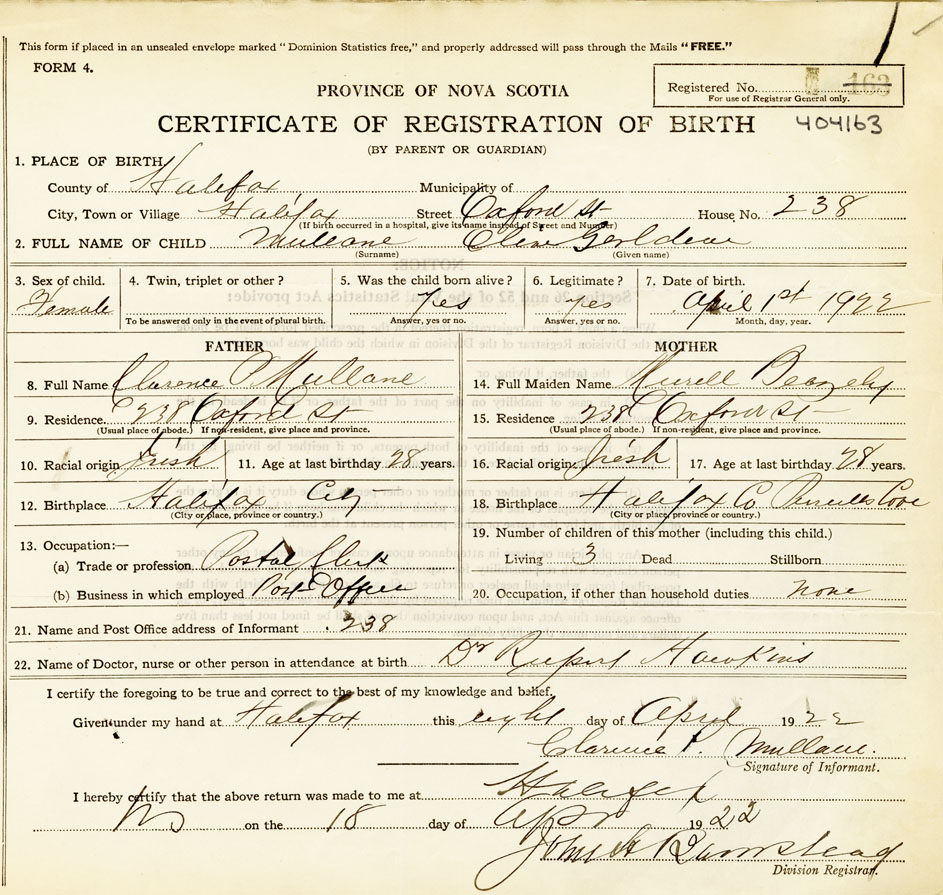 This form if placed in an unsealed envelope marked "Dominion Statistics free," and properly addressed will pass through the Mails "FREE."
FORM 4.
Registered No. 163
For use of Registrar General only.
PROVINCE OF NOVA SCOTIA
CERTIFICATE OF REGISTRATION OF BIRTH 404163
(BY PARENT OR GUARDIAN)
1. PLACE OF BIRTH
County of Halifax Municipality of
City, Town or Village Halifax Street Oxford St House No. 238
(If birth occurred in a hospital, give its name instead of Street and Number)
2. FULL NAME OF CHILD Mullane
(Surname) (Given name)
3. Sex of child. 4. Twin, triplet or other? 5. Was the child born alive? 6. Legitimate? 7. Date of birth.
Female Yes Yes April 1st 1922
To be answered only in the event of plural birth. Answer, yes or no. Answer, yes or no. Month, day, year.
FATHER MOTHER
8. Full Name Clarence P Mullane 14. Full Maiden Name
9. Residence 238 Oxford St 15. Residence 238 Oxford St
(Usual place of abode.) If non-resident, give place and province. (Usual place of abode.) If non-resident, give place and province.
10. Racial origin Irish 11. Age at last birthday 28 years. 16. Racial origin Irish 17. Age at last birthday 28 years.
12. Birthplace Halifax City 18. Birthplace Halifax Co Cove
(City or place, province or country.) (City or place, province or country.)
13. Occupation:— 19. Number of children of this mother (including this child.)
(a) Trade or profession Postal Clerk Living 3 Dead Stillborn
(b) Business in which employed Post Office 20. Occupation, if other than household duties none
21. Name and Post Office address of Informant 238
22. Name of Doctor, nurse or other person in attendance at birth Dr Rupert Hawkins
I certify the foregoing to be true and correct to the best of my knowledge and belief.
Given under my hand at Halifax this eight day of April 1922
Clarence P. Mullane.
Signature of Informant.
I hereby certify that the above return was made to me at Halifax
on the 18 day of Apr 1922
John A Barnstead
Division Registrar.